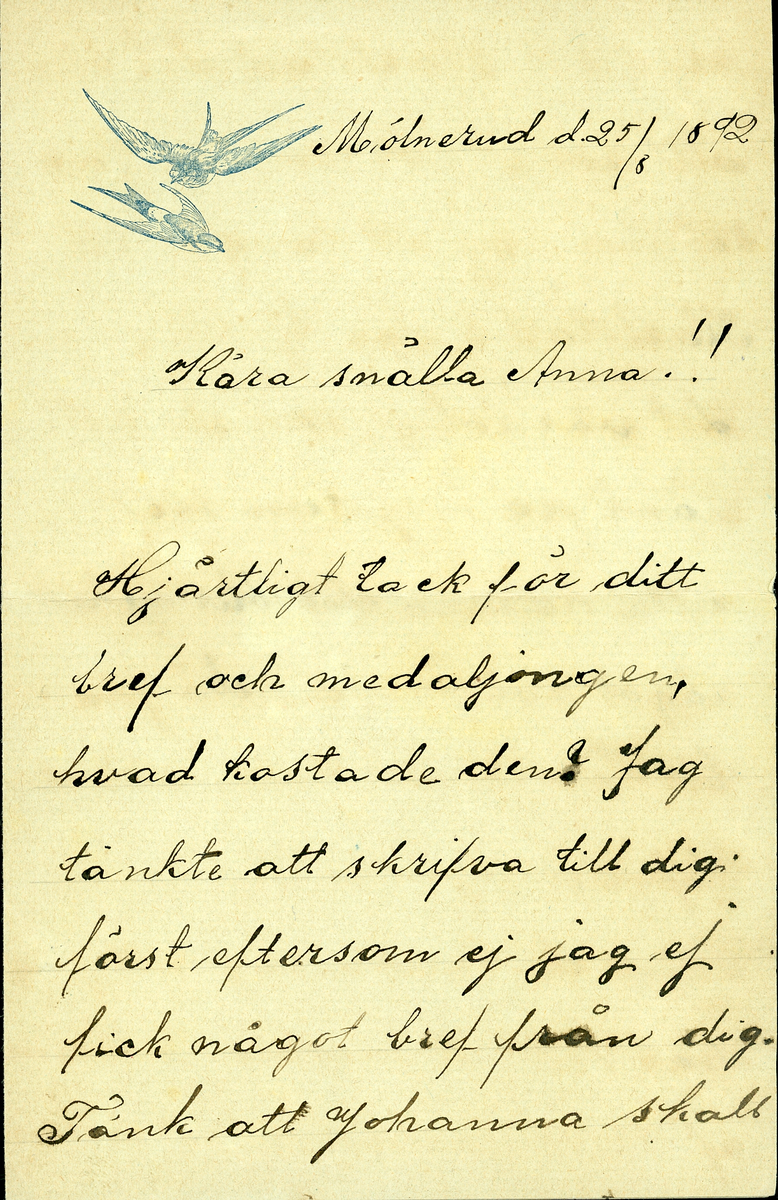 Mölnerud d. 25/8 1892
Kära snälla Anna!!
Hjärtligt tack för ditt
bref och medaljongen,
hvad kostade den? Jag
tänkte att skrifva till dig
först eftersom ej jag ej
fick något bref från dig.
Tänk att Johanna skall